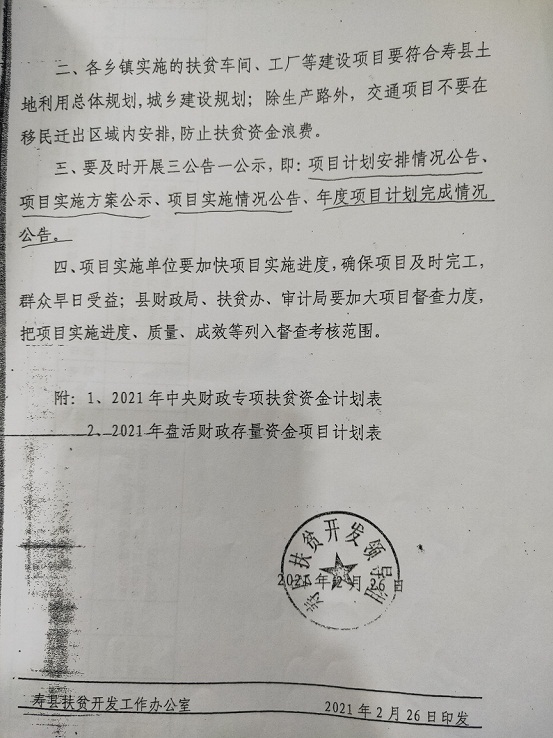 二、各乡镇实施的扶贫车间、工厂等建设项目要符合寿县土
地利用总体规划,城乡建设规划；除生产路外，交通项目不要在
移民迁出区域内安排,防止扶贫资金浪费。
三、要及时开展三公告一公示，即：项目计划安排情况公告、
项目实施方案公示、项目实施情况公告、年度项目计划完成情况
公告。
四、项目实施单位要加快项目实施进度,确保项目及时完工,
群众早日受益；县财政局、扶贫办、审计局要加大项目督查力度,
把项目实施进度、质量、成效等列入督查考核范围。
附：1、2021年中央财政专项扶贫资金计划表
2、2021年盘活财政存量资金项目计划表
寿县扶贫开发领导组
2021年2月26日
寿县扶贫开发工作办公室 2021年2月26日印发